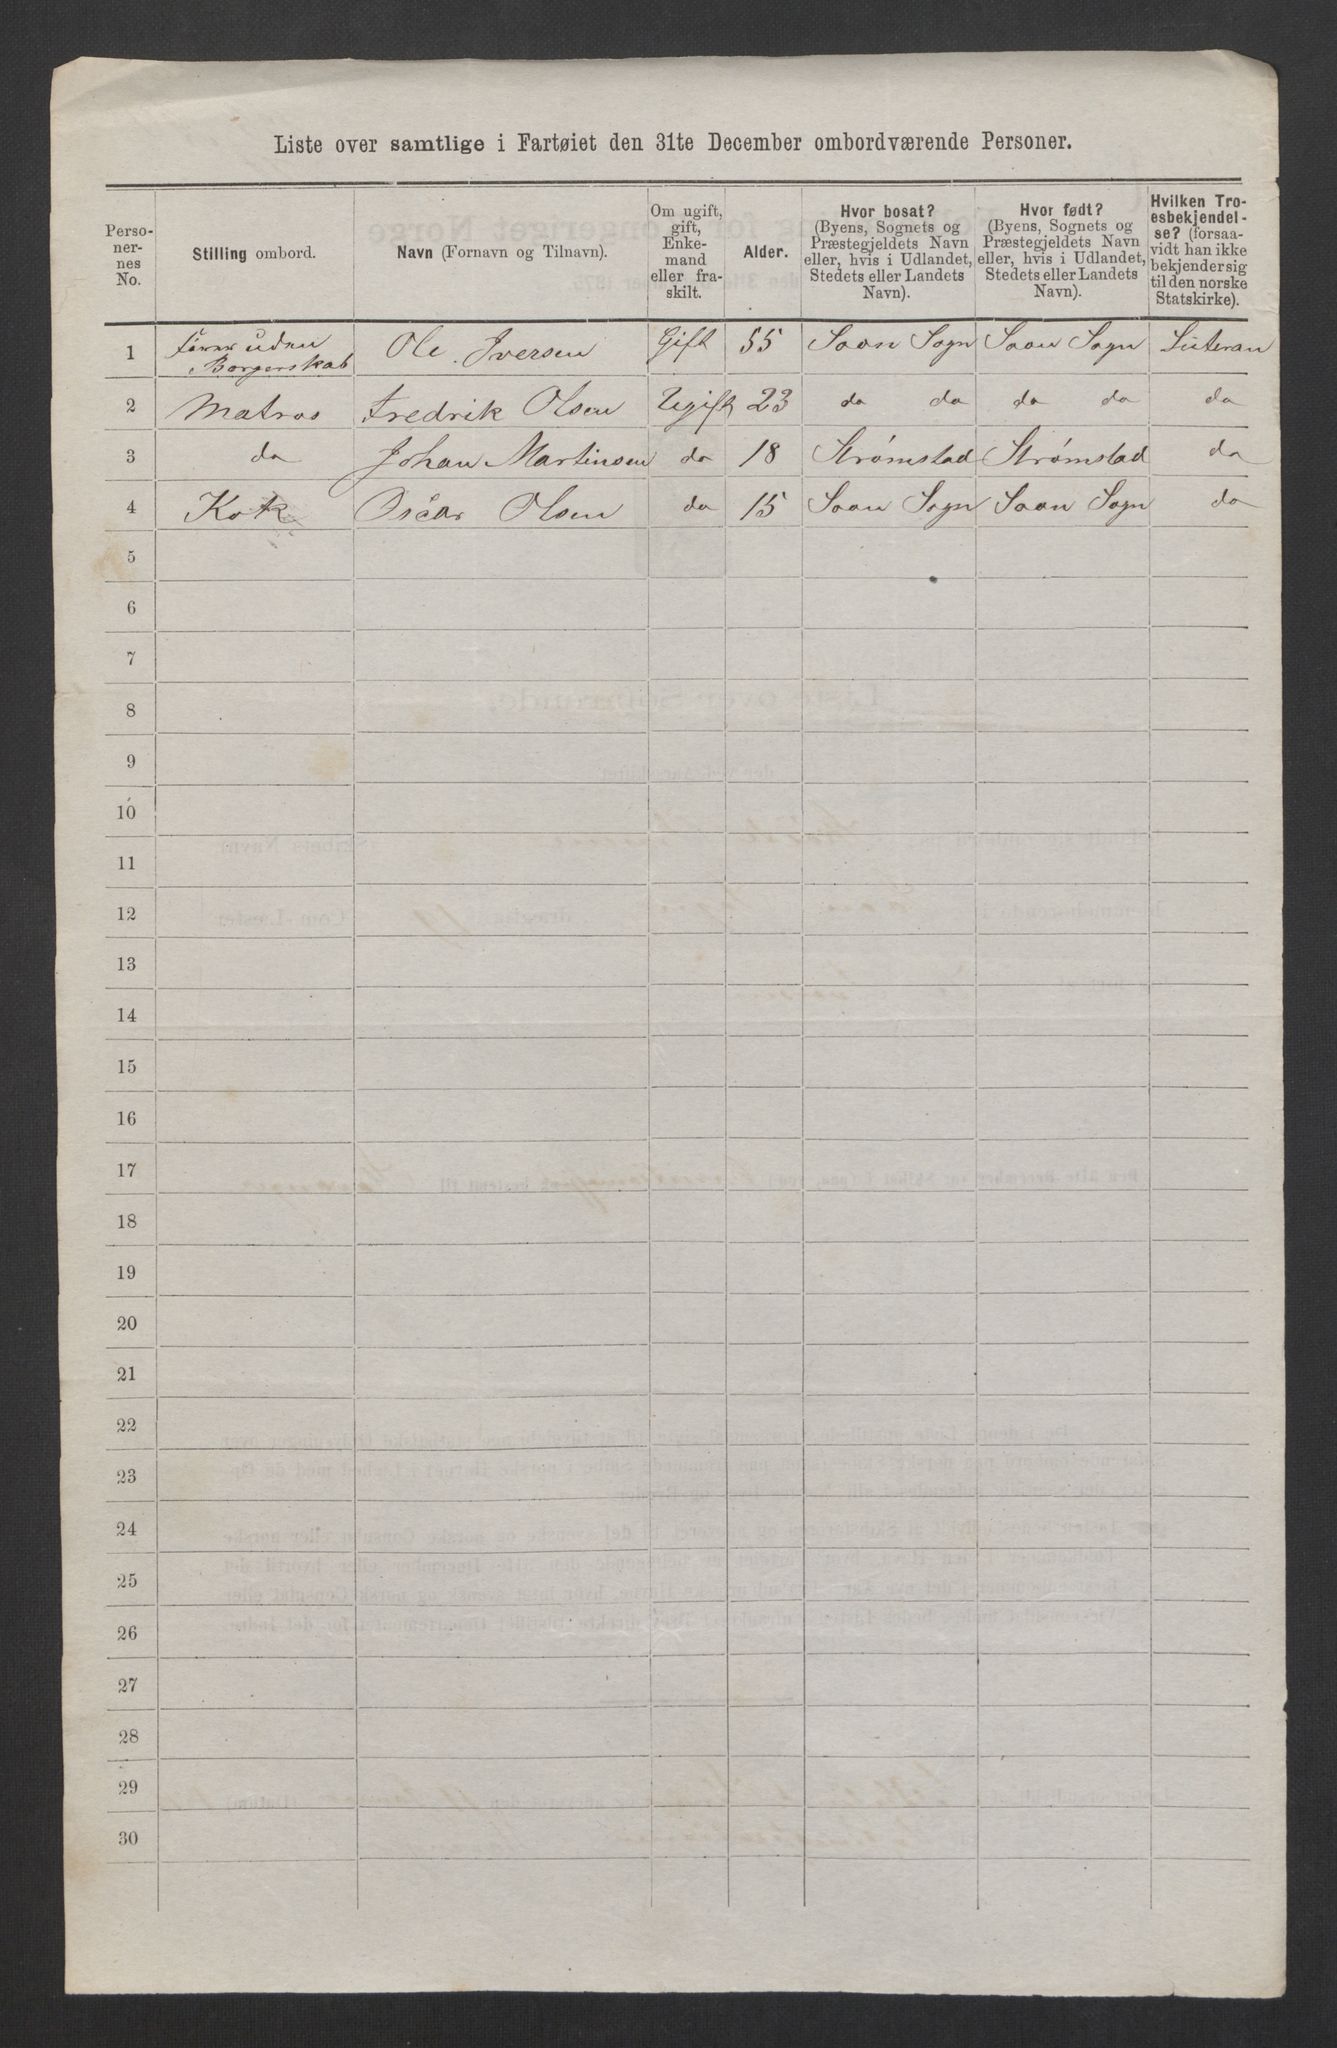 Liste over samtlige i Fartøiet den 31te December ombordværende Personer.
Perso-
ner-
nes
No.
Stilling ombord.
Navn (Fornavn og Tilnavn).
Om ugift,
gift,
Enke-
mand
eller fra-
skilt.
Alder.
Hvor bosat?
(Byens, Sognets og
Præstegjeldets Navn
eller, hvis i Udlandet,
Stedets eller Landets
Navn).
Hvor født?
(Byens, Sognets og
Præstegjeldets Navn
eller, hvis i Udlandet,
Stedets eller Landets
Navn).
Hvilken Tro-
esbekjendel-
se? (forsaa-
vidt han ikke
bekjender sig
til den norske
Statskirke).
1 Fører uden Borgerskab Ole Iversen Gift 55 Soon Sogn Soon Sogn Luteran
2 Matros Fredrik Olsen Ugift 23 do do do do do
3 do Johan Martinsen do 18 Strømstad Strømstad do
4 Kok Oscar Olsen do 15 Soon Sogn Soon Sogn do
5
6
7
8
9
10
11
12
13
14
15
16
17
18
19
20
21
22
23
24
25
26
27
28
29
30